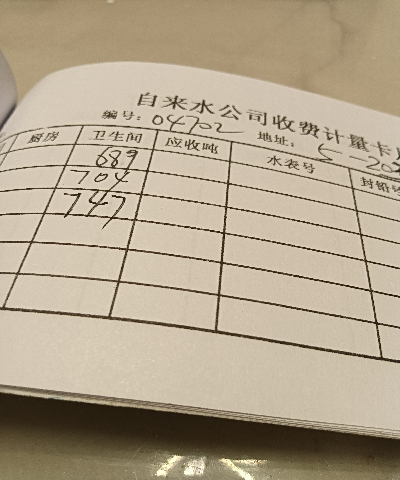 自来水公司收费计量卡
编号：04702 地址：5-20
厨房 卫生间 应收吨 水表号 封铅号
689
704
747